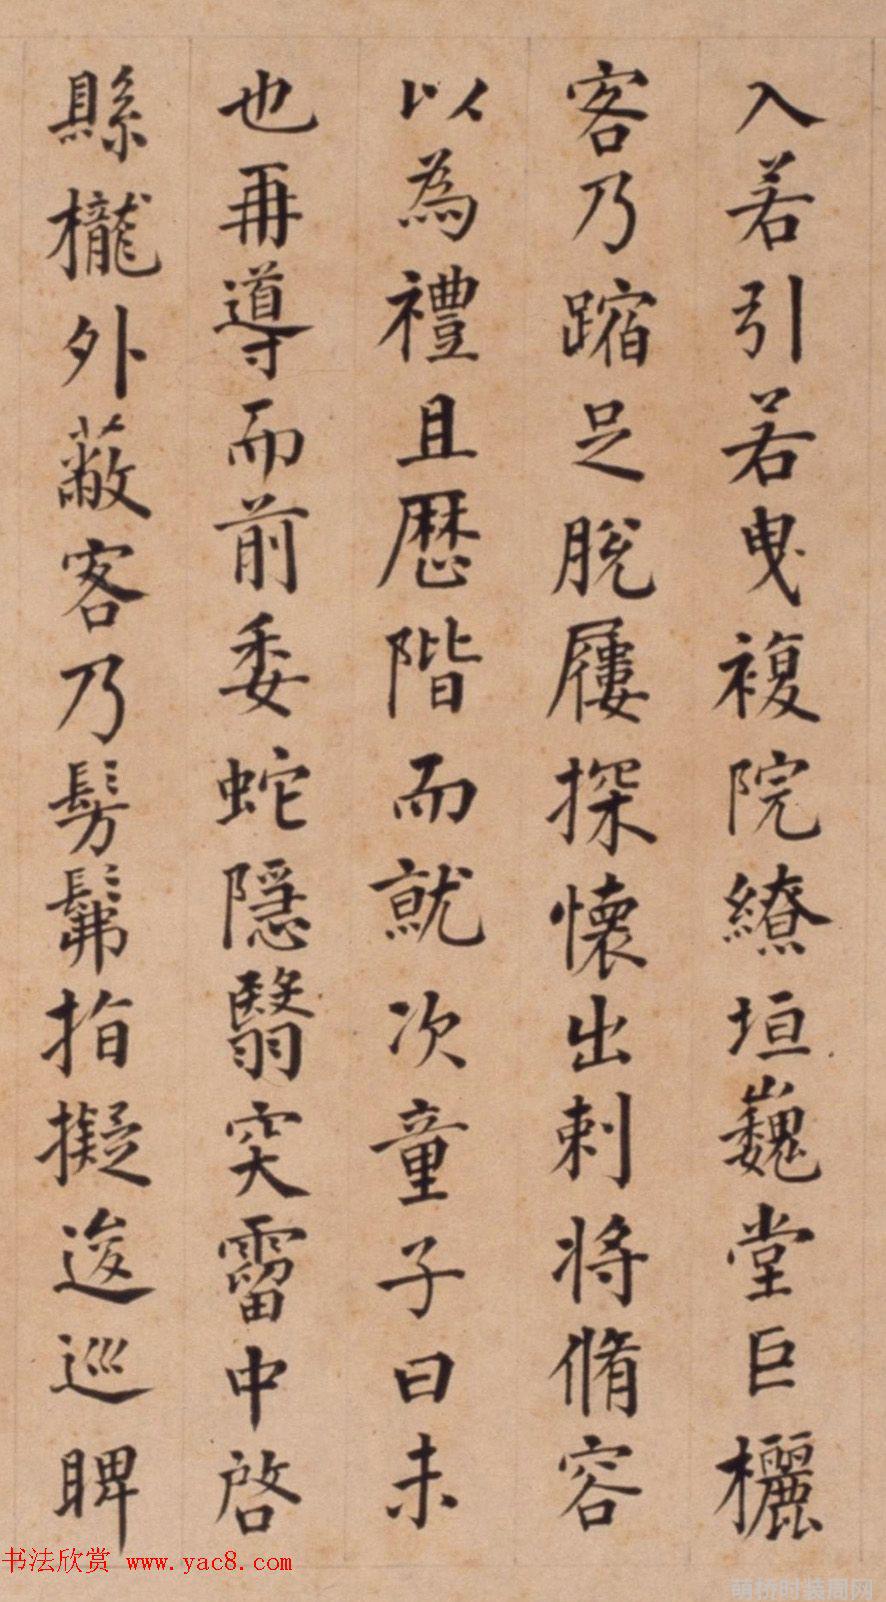 入若引若曳複院繚垣巍堂巨欐
客乃蹜足脫屨探懷出刺將脩容
以為禮且歷階而就次童子曰未
也再導而前委蛇隱翳穾霤中啓
縣櫳外蔽客乃髣髴指擬逡巡睥
书法欣赏 www.yac8.com
萌桥时装周网